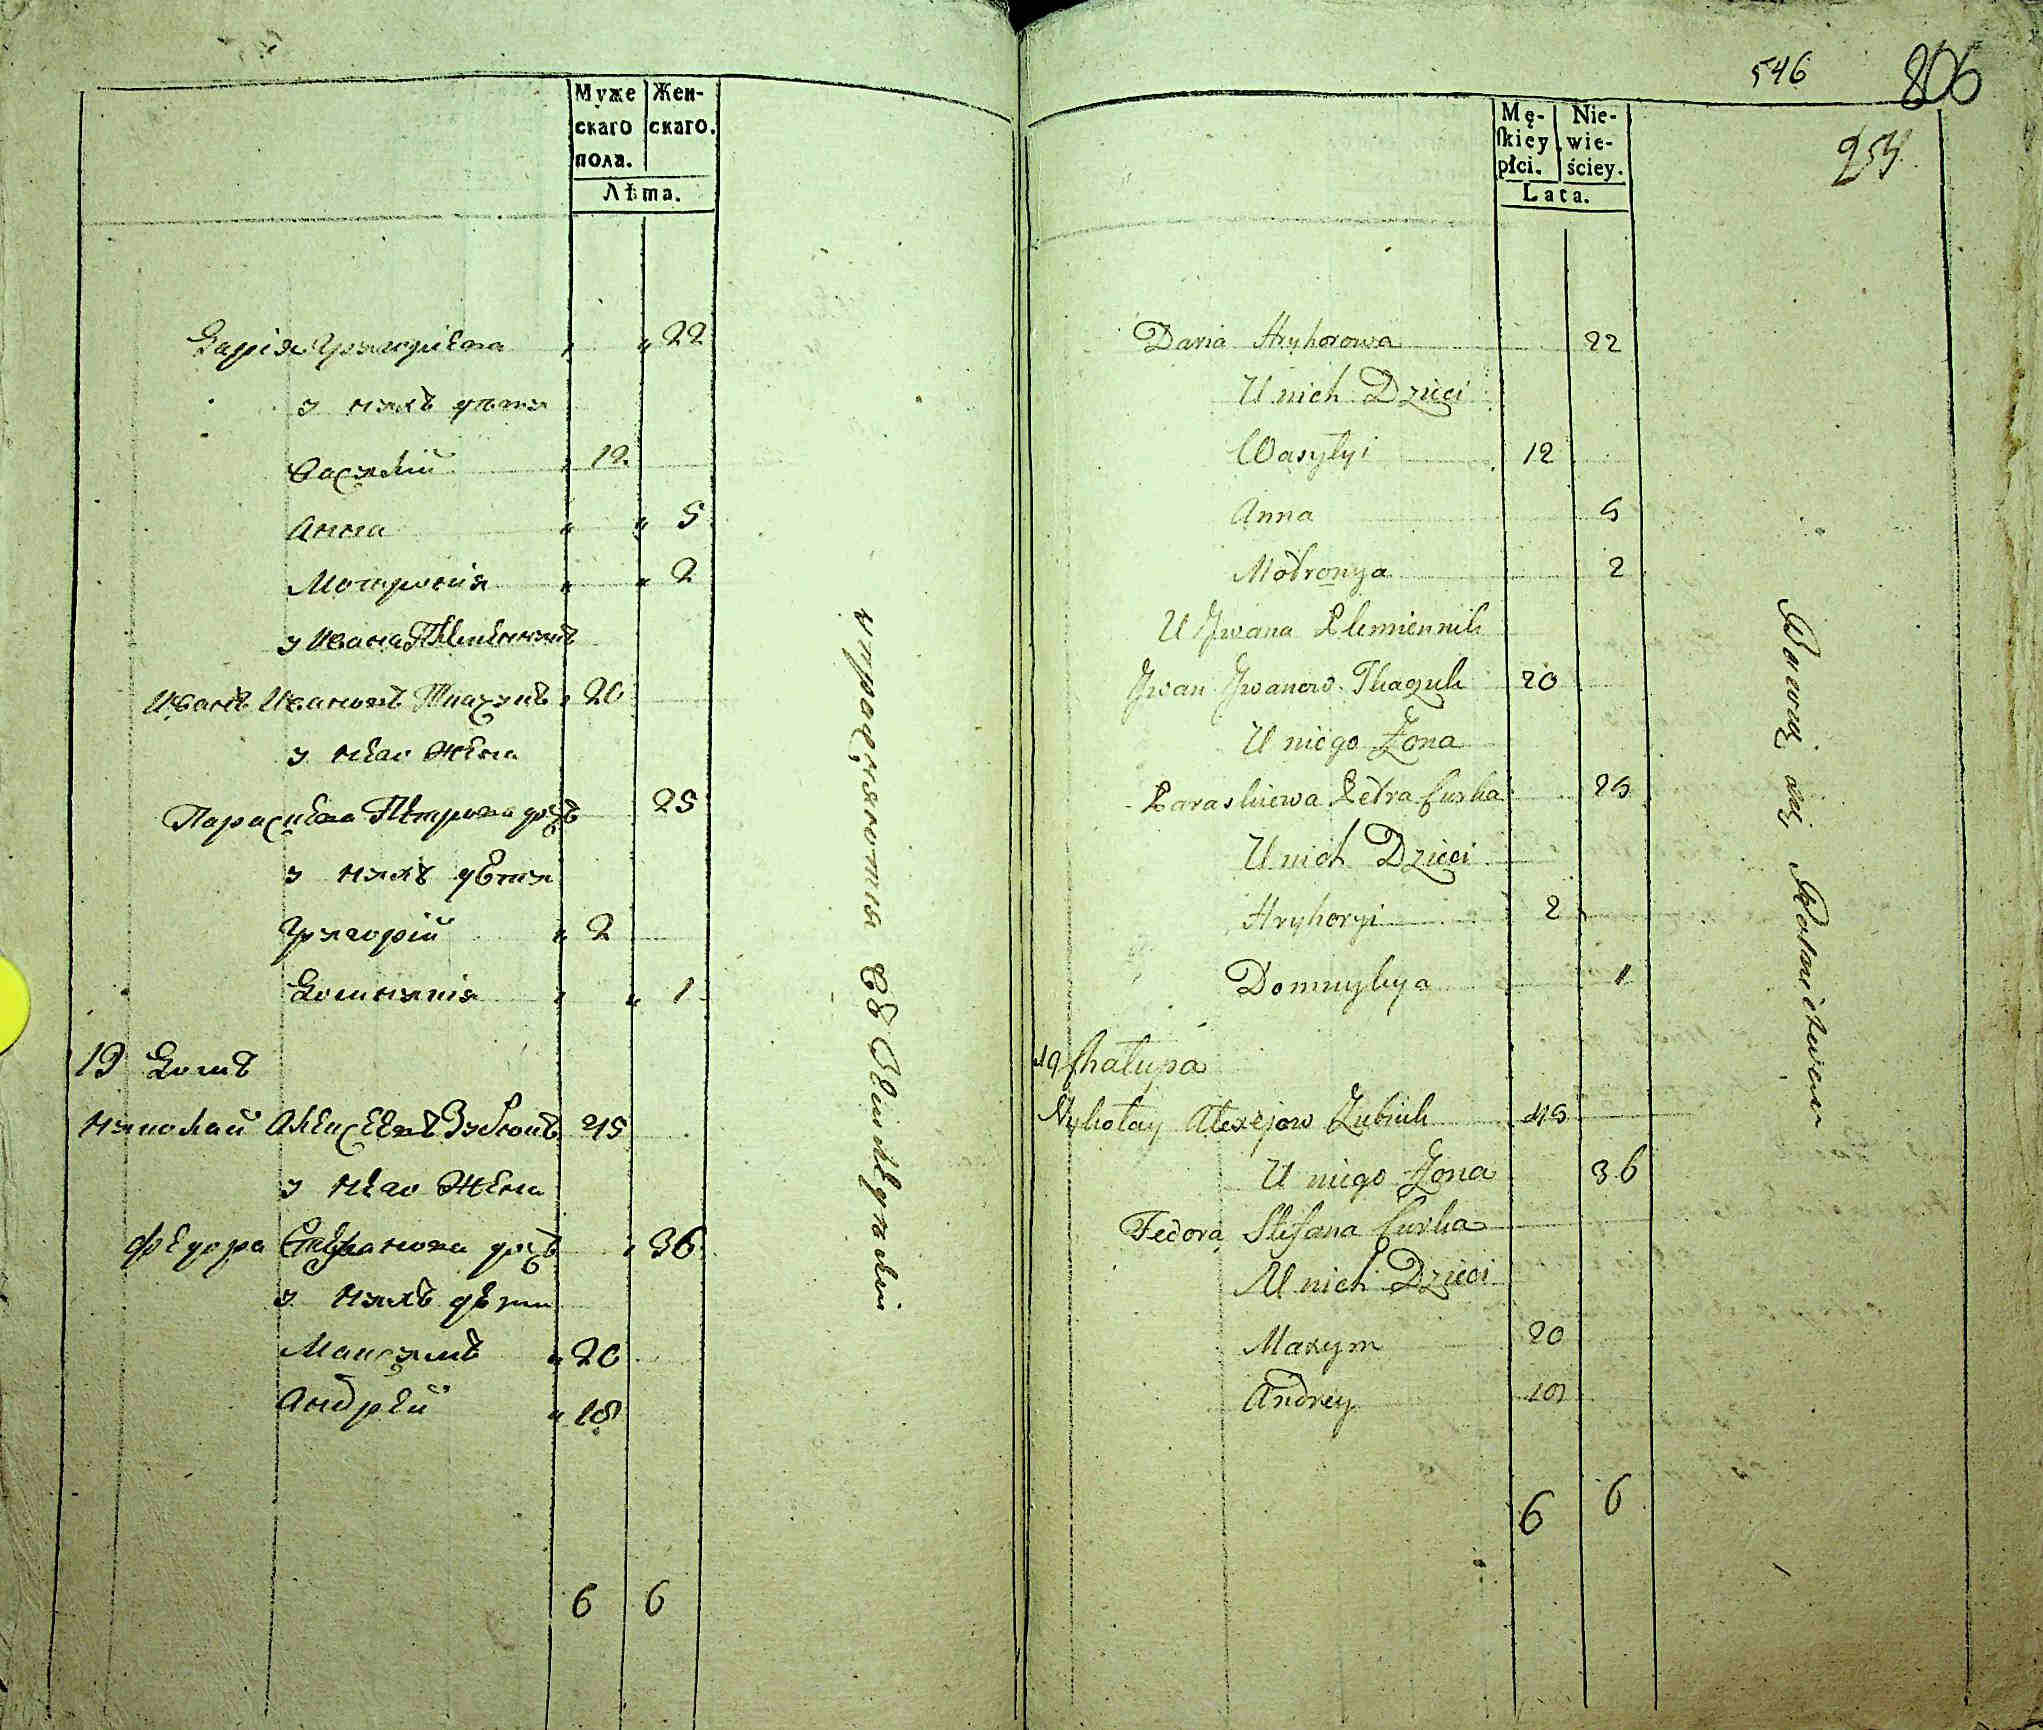 Муже
скаго
пола.
Жен-
скаго.
Лѣта.
Дарія Григоріева 22
у нихъ дѣти
Василій 12
Анна 5
Мотронія 2
у Ивана Племенникъ
Иванъ Ивановъ Ткачукъ 20
у него Жена
Параскева Петрова дочь 25
у нихъ дѣти
Григорій 2
Домникія 1
19 Домъ
Николай Алексеевъ Зубюкъ 45
у него Жена
Федора Стефанова дочь 36
у нихъ дѣти
Максимъ 20
Андрей 18
6 6
546
806
Mę-
skiey
płci.
Nie-
wie-
ściey.
Lata.
Daria Hryhorowa 22
U nich Dzieci
Wasylyi 12
Anna 5
Motronya 2
U Jwana Plemiennik
Jwan Jwanow Tkaczuk 20
U niego Żona
Paraskiewa Petra Curka 25
U nich Dzieci
Hryhoryi 2
Domnykya 1
19 Chałupa
Nykołay Alexejow Zubiuk 45
U niego Żona 36
Fedora Stefana Curka
U nich Dzieci
Maxym 20
Andrey 18
6 6